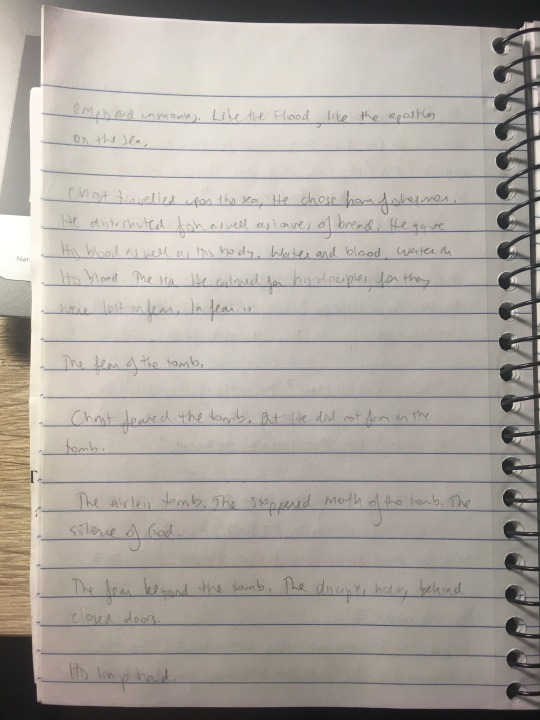 Like the Flood, like the apostles
on the sea.
Christ travelled upon the sea, He chose from fishermen.
He distributed fish as well as loaves of bread. He gave
His blood as well as His body. Water and blood, water in
His blood. The sea He calmed for his disciples, for they
were lost in fear. In fear...
The fear of the tomb.
Christ feared the tomb. But He did not fear in the
tomb.
The airless tomb. The stoppered mouth of the tomb. The
silence of God.
The fear beyond the tomb. The disciples hiding behind
closed doors.
His limp hand.
Nar